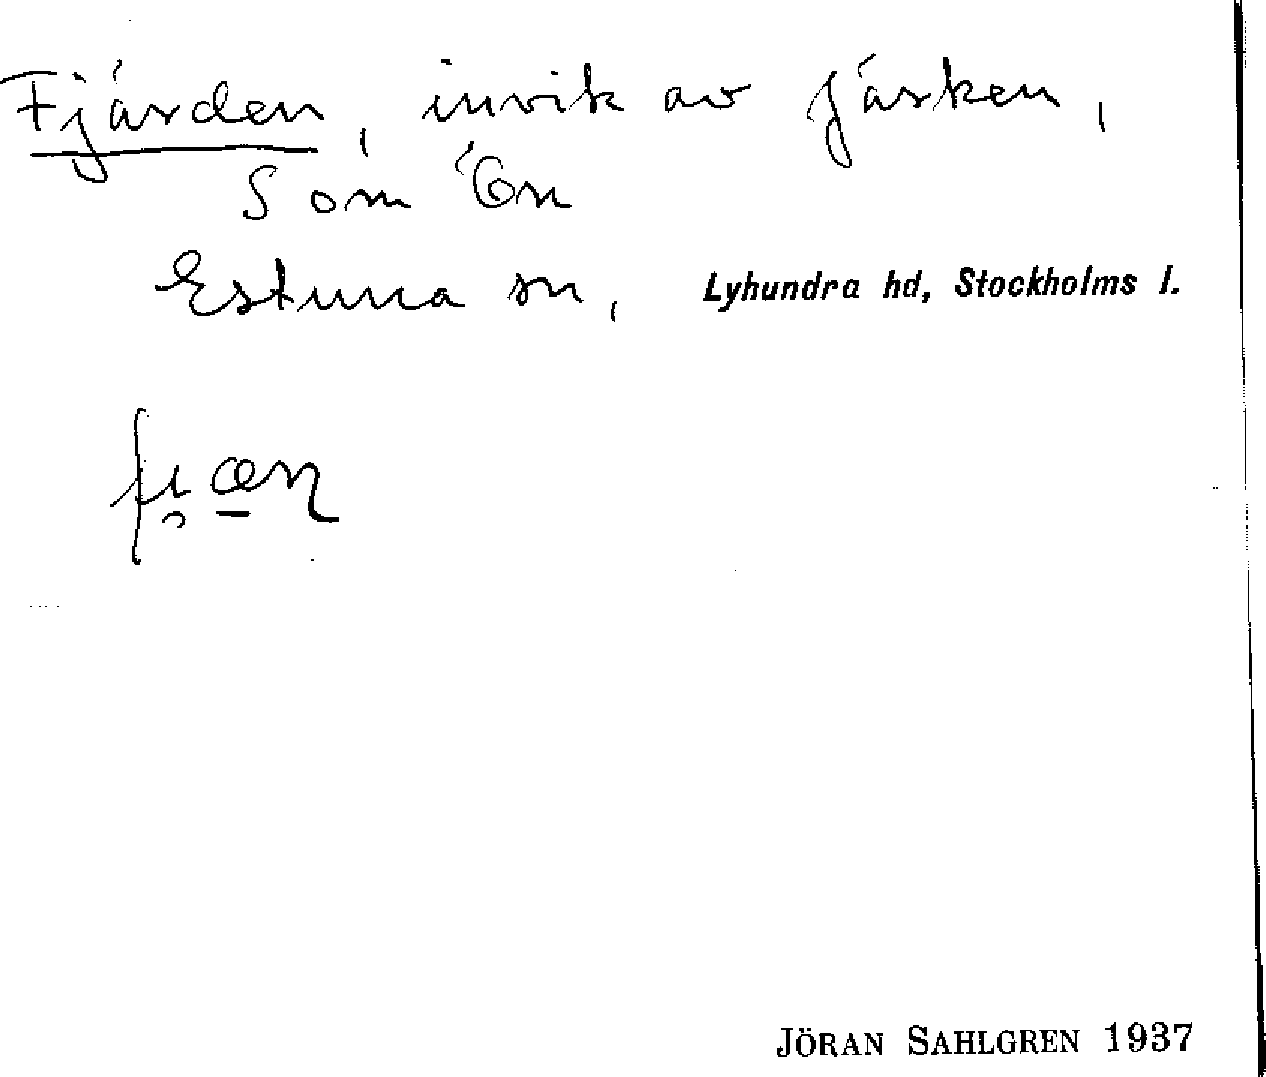 Fjärden, invik av Järken,
S om Ön
Estuna sn, Lyhundra hd, Stockholms l.
JÖRAN SAHLGREN 1937